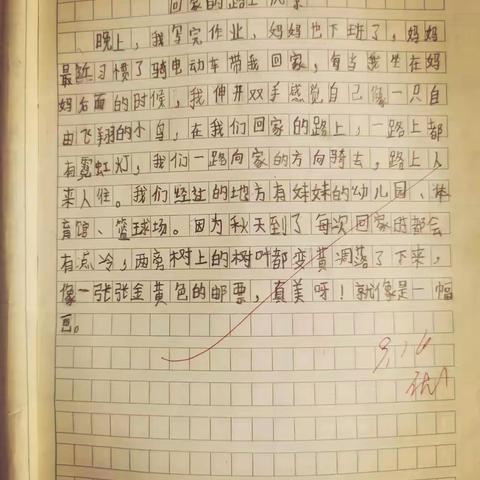 回家的路上风景
晚上，我写完作业，妈妈也下班了，妈妈
最近习惯了骑电动车带我回家，每当我坐在妈
妈后面的时候，我伸开双手感觉自己像一只自
由飞翔的小鸟，在我们回家的路上，一路上都
有霓虹灯，我们一路向家的方向骑去，路上人
来人往。我们经过的地方有妹妹的幼儿园、体
育馆、篮球场。因为秋天到了每次回家时都会
有点冷，两旁树上的树叶都变黄凋落了下来，
像一张张金黄色的邮票，真美呀！就像是一幅
画。
9.16